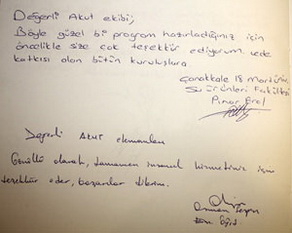 Değerli Akut ekibi;
Böyle güzel bi program hazırladığınız için
öncelikle size çok teşekkür ediyorum. ve de
katkısı olan bütün kuruluşlara
Çanakkale 18 Mart Üniv.
Su Ürünleri Fakültesi
Pınar Erel
Değerli AKUT elemanları
Gönüllü olarak, tamamen insancıl hizmetiniz için
teşekkür eder, başarılar dilerim.
Osman